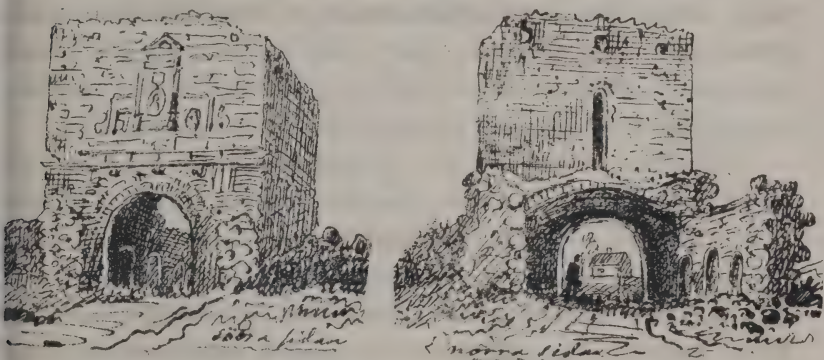 södra sidan
norra sidan